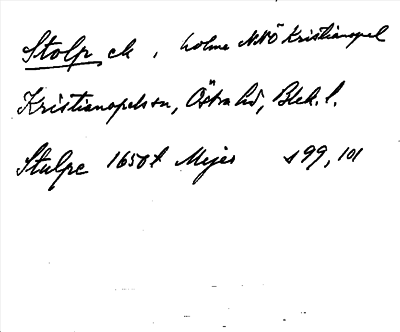 Stolp, ck, holme NNÖ Kristianopel
Kristianopels sn, Östra hd, Blek. l.
Stulpe 1650t Mejer s 99, 101